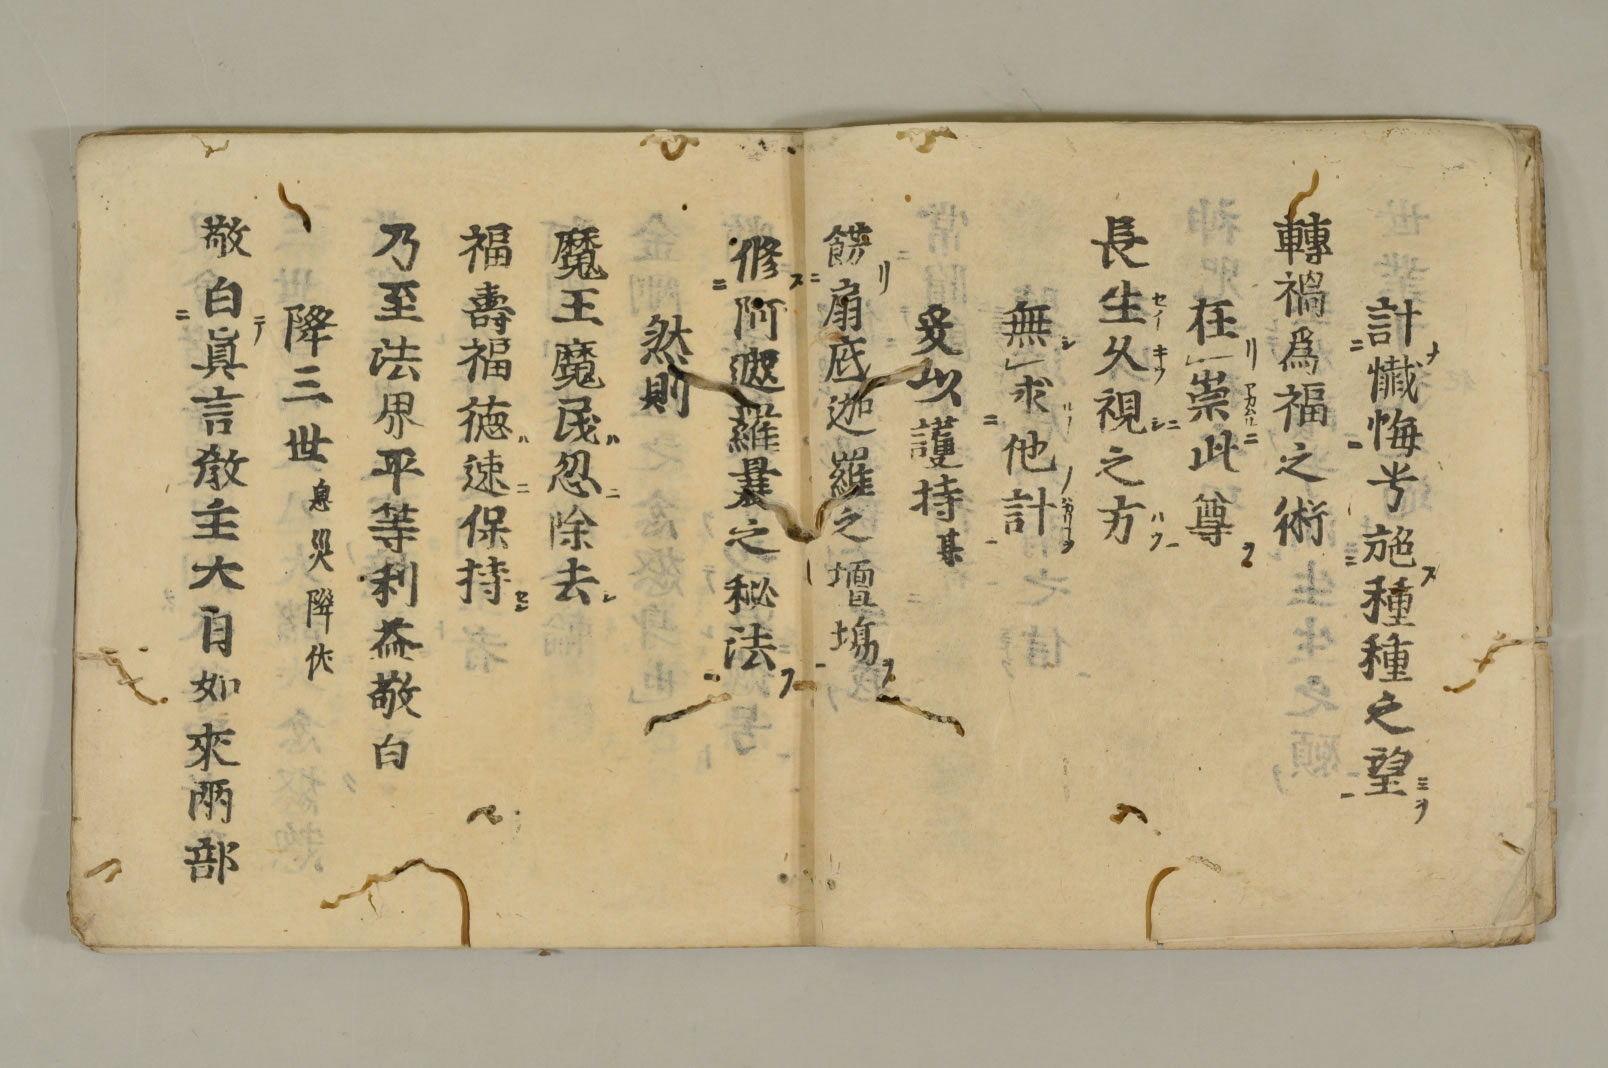 計懺悔兮施種種之望
轉禍爲福之術
在崇此尊
長生久視之方
無求他計
爰以護持某
餝扇底迦羅之壇場
修阿毘羅農之秘法
然則
魔王魔民忽除去
福壽福徳速保持
乃至法界平等利益敬白
降三世 息災降伏
敬白眞言教主大日如來兩部